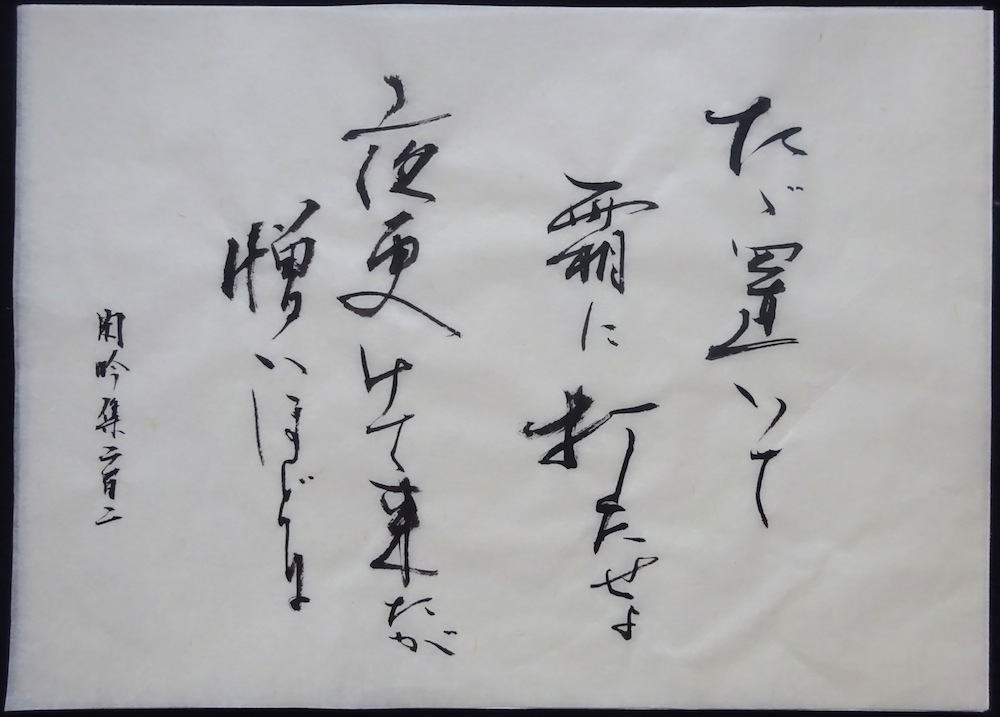 たゞ置いて
霜に打たせよ
夜更けて来たが
憎いほどに
閑吟集二百二